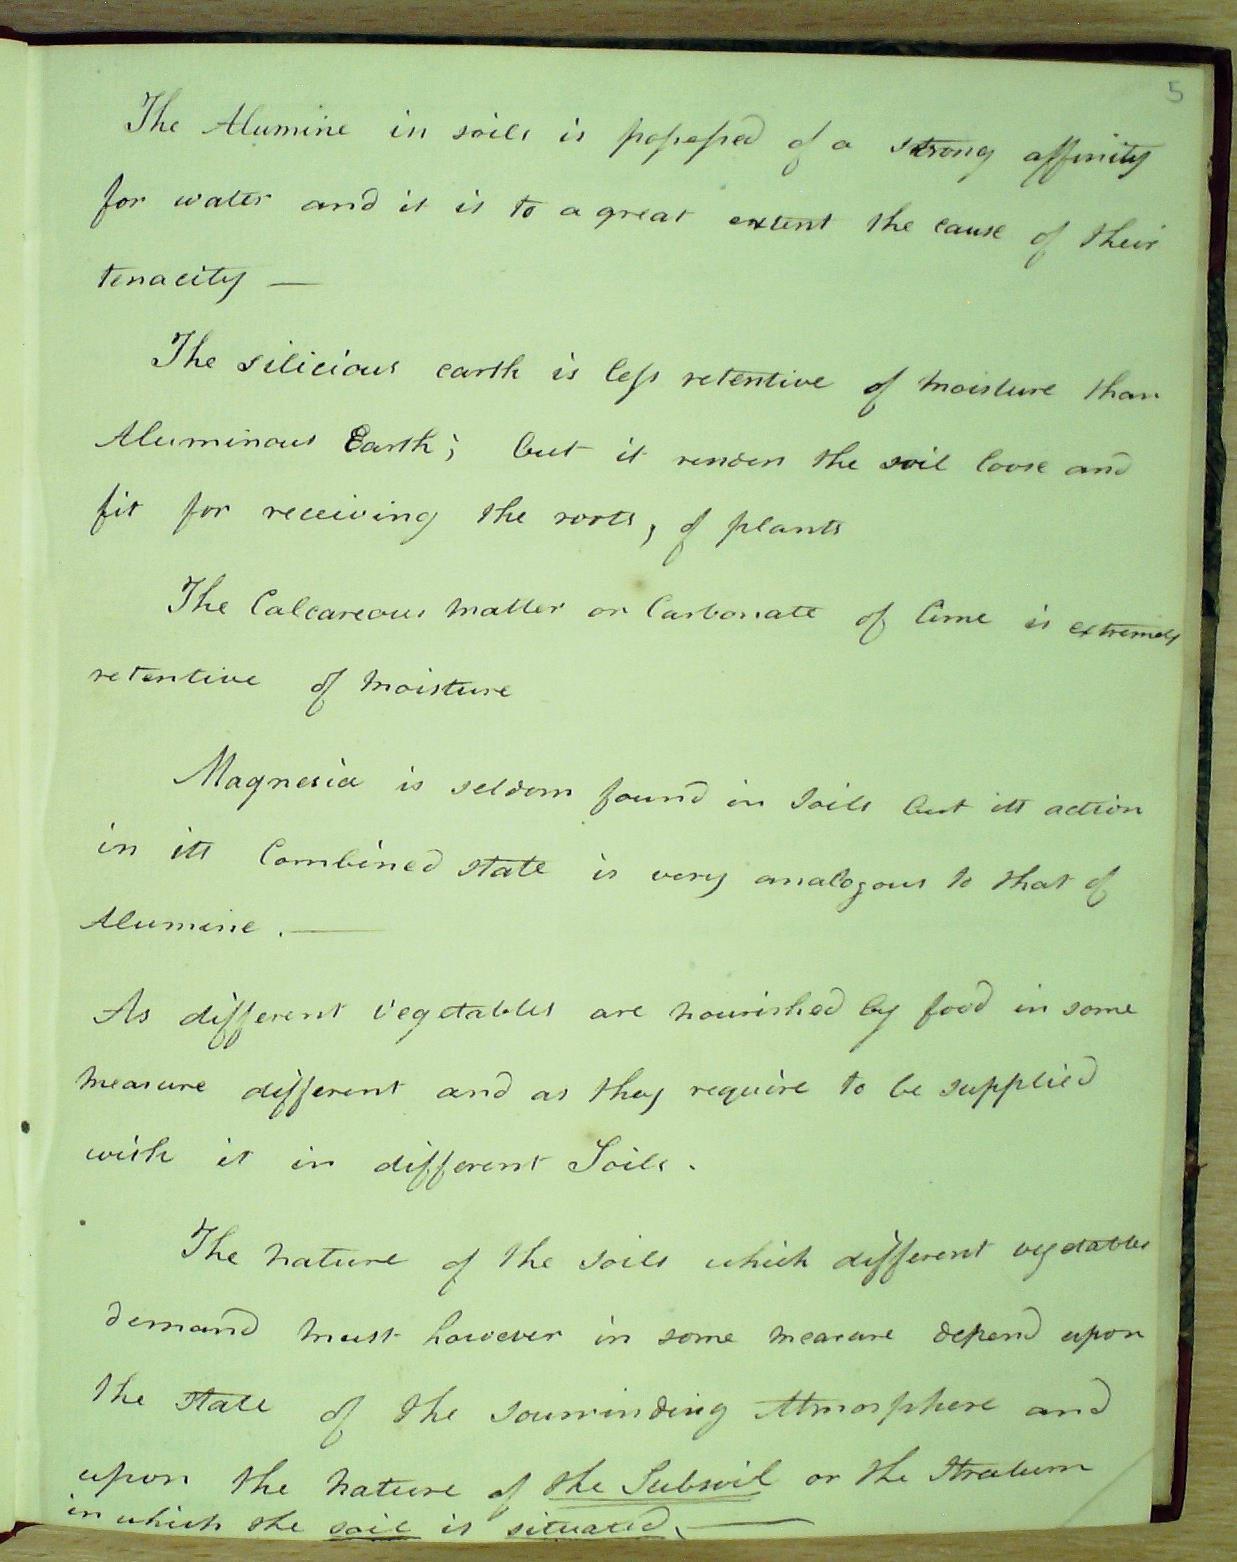 5
The Alumine in soils is possessed of a strong affinity
for water and it is to a great extent the cause of their
tenacity —
The silicious earth is less retentive of moisture than
Aluminous Earth; but it renders the soil loose and
fit for receiving the roots, of plants
The Calcareous matter or Carbonate of lime is extremely
retentive of moisture
Magnesia is seldom found in soils but its action
in its Combined state is very analogous to that of
Alumine. —
As different Vegetables are nourished by food in some
measure different and as they require to be supplied
with it in different Soils.
The nature of the soils which different vegetables
demand must however in some measure depend upon
the state of the sourrinding Atmosphere and
upon the nature of the Subsoil or the Stratum
in which the soil is situated. —